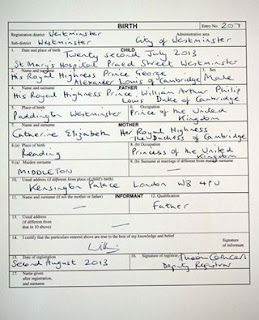 BIRTH
Entry No. 207
Registration district Westminster
Administrative area
Sub-district Westminster
City of Westminster
1. Date and place of birth
CHILD
Twenty second July 2013
St Mary's Hospital Praed Street Westminster
2. Name and surname
3. Sex
His Royal Highness Prince George
Alexander Louis of Cambridge
Male
4. Name and surname
FATHER
His Royal Highness Prince William Arthur Philip
Louis Duke of Cambridge
5. Place of birth
6. Occupation
Paddington Westminster
Prince of the United
Kingdom
7. Name and surname
MOTHER
Catherine Elizabeth Her Royal Highness
The Duchess of Cambridge
8.(a) Place of birth
8.(b) Occupation
Reading
Princess of the United
Kingdom
9.(a) Maiden surname
9.(b) Surname at marriage if different from maiden surname
MIDDLETON
10. Usual address (if different from place of child's birth)
Kensington Palace London W8 4PU
INFORMANT
11. Name and surname (if not the mother or father)
12. Qualification
Father
13. Usual address
(if different from
that in 10 above)
14. I certify that the particulars entered above are true to the best of my knowledge and belief
Signature
of informant
15. Date of registration
16. Signature of registrar
Second August 2013
Deputy Registrar
17. Name given
after registration,
and surname